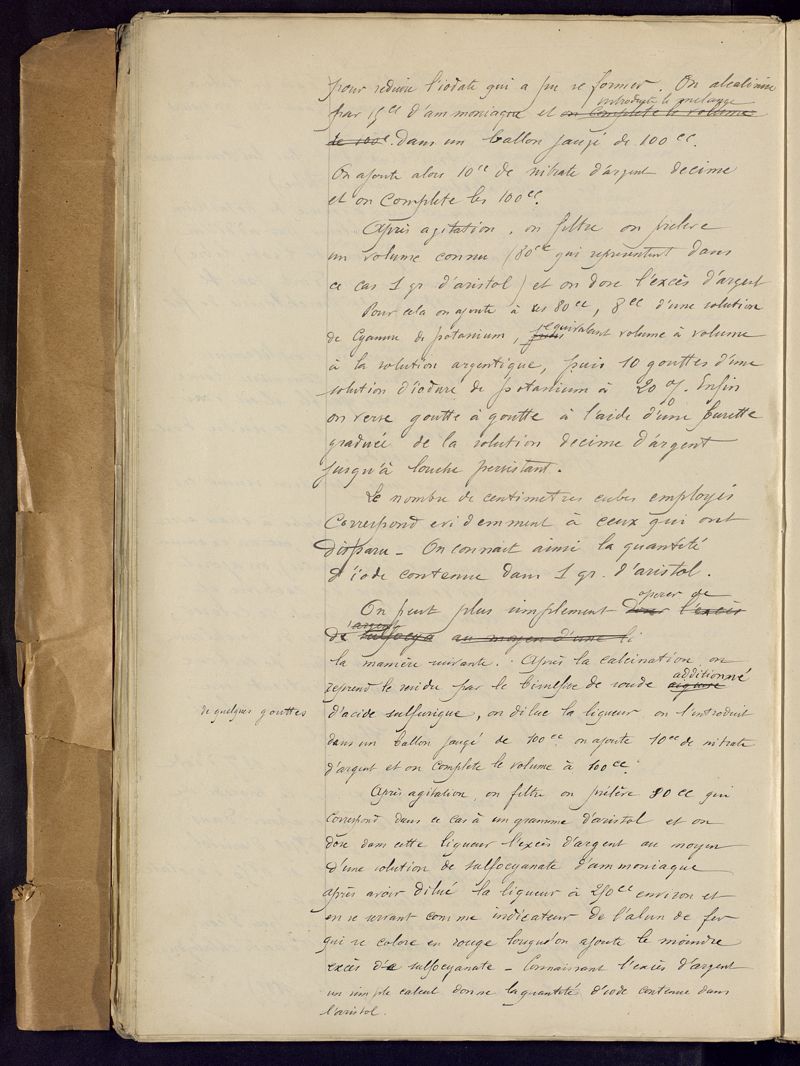 pour réduire l'iodate qui a pu se former. On alcalinise
introduit le mélange
par 15cc d'ammoniaque et on complète le volume
de 100c. dans un ballon jaugé de 100cc.
On ajoute alors 10cc de nitrate d'argent decime
et on complete les 100cc.
Après agitation, on filtre on preleve
un volume connu (80cc qui representent dans
ce cas 1 gr d'aristol) et on dose l'excès d'argent
Pour cela on ajoute à ces 80cc, 8cc d'une solution
de Cyanure de potassium, equivalant volume à volume
à la solution argentique, puis 10 gouttes d'une
solution d'iodure de potassium à 20 %. Enfin
on verse goutte à goutte à l'aide d'une burette
graduée de la solution decime d'argent
jusqu'à louche persistant.
Le nombre de centimetres cubes employés
Correspond evidemment à ceux qui ont
disparu - On connait ainsi la quantité
d'iode contenue dans 1 gr. d'aristol.
operer de
On peut plus simplement doser l'excès
d'argent
de sulfocya au moyen d'une li
la manière suivante. Après la calcination, on
additionné
reprend le residu par le bisulfite de soude
de quelques gouttes
d'acide sulfurique, on dilue la liqueur on l'introduit
dans un ballon jaugé de 100cc on ajoute 10cc de nitrate
d'argent et on complete le volume à 100cc.
Après agitation, on filtre on prélève 80cc qui
correspond dans ce cas à un gramme d'aristol et on
dose dans cette liqueur l'excès d'argent au moyen
d'une solution de sulfocyanate d'ammoniaque
après avoir dilué la liqueur à 250cc environ et
en se servant comme indicateur de l'alun de fer
qui se colore en rouge lorsqu'on ajoute le moindre
excès de sulfocyanate - Connaissant l'excès d'argent
un simple calcul donne la quantité d'iode contenue dans
l'aristol.